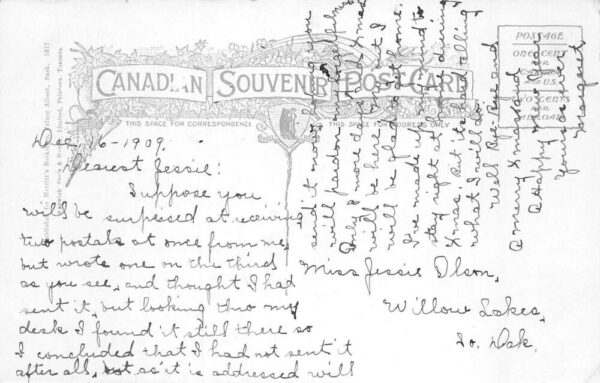 CANADIAN SOUVENIR POST CARD
THIS SPACE FOR CORRESPONDENCE
THIS SPACE FOR ADDRESS ONLY
POSTAGE
ONE CENT
FOR
CANADA
AND U.S.
TWO CENTS
FOR
ABROAD
Dec 16-1909.
Dearest Jessie:
Suppose you
will be surprised at receiving
two postals at once from me
but wrote one on the third
as you see, and thought I had
sent it, but looking thro my
desk I found it still there so
I concluded that I had not sent it
after all, but as it is addressed will
send it now, hoping you
will pardon my
Only more days and Xmas
will be here but I
will be glad
I've made up my mind to
stay right at home during
Xmas. But it's hard telling
what I will do.
Well Bee Bee and
A merry Xmas and
A Happy new year
Yours as ever
Margaret
Miss Jessie Olson,
Willow Lakes,
So. Dak.